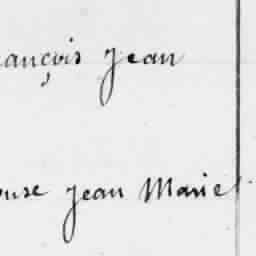 ançois Jean
ouse Jean Marie